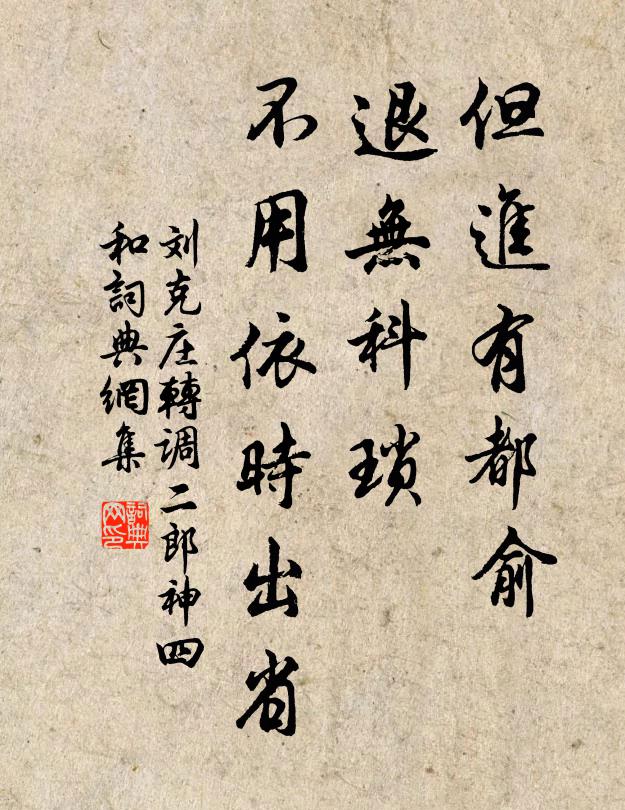 但進有都俞
退無科瑣
不用依時出省
刘克庄轉调二郎神四
和詞典網集
詞典
网印